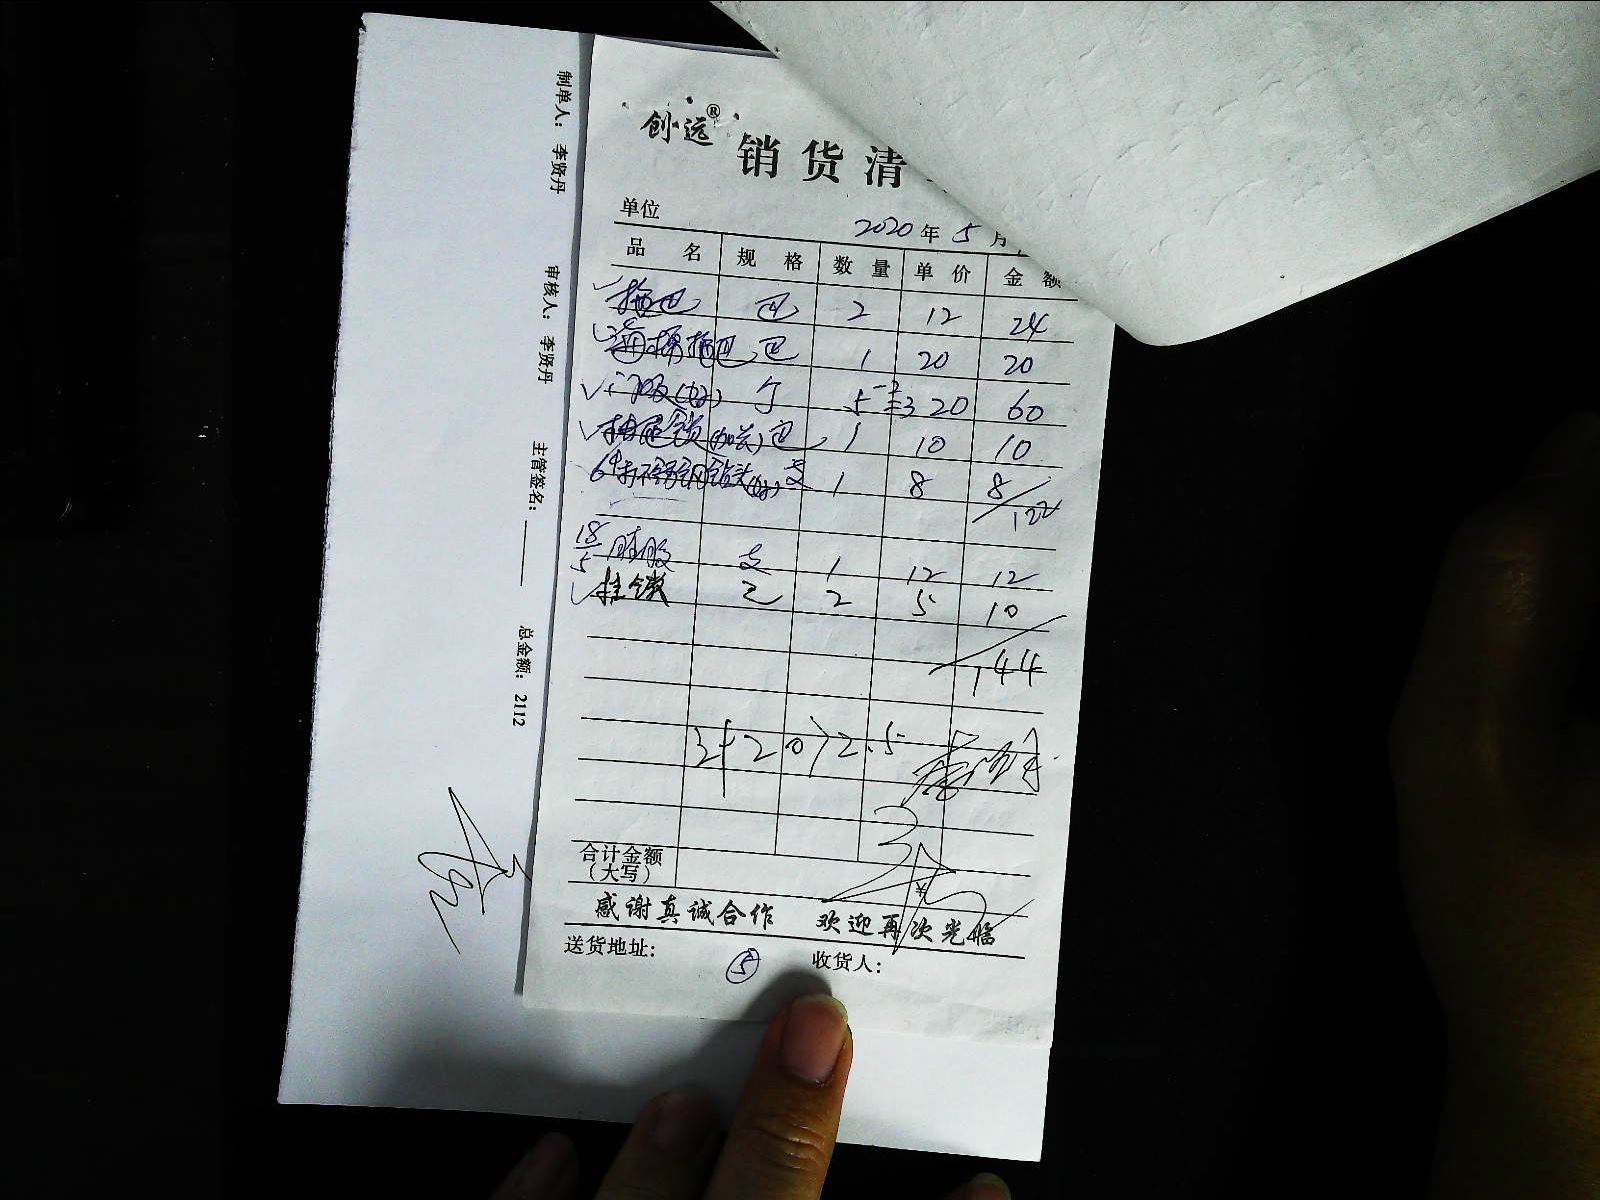 创远® 销货清
单位
2020年5月
品名 规格 数量 单价 金额
拖巴 巴 2 12 24
海棉拖巴 巴 1 20 20
门吸(好) 个 5-2=3 20 60
抽屉锁(加长) 巴 1 10 10
6#打不锈钢钻头(好) 支 1 8 8
122
18/5 玻胶 支 1 12 12
挂锁 2 5 10
144
合计金额
(大写)
¥
感谢真诚合作 欢迎再次光临
送货地址: ⑤ 收货人:
制单人: 李贤丹 审核人: 李贤丹 主管签名: 总金额: 2112